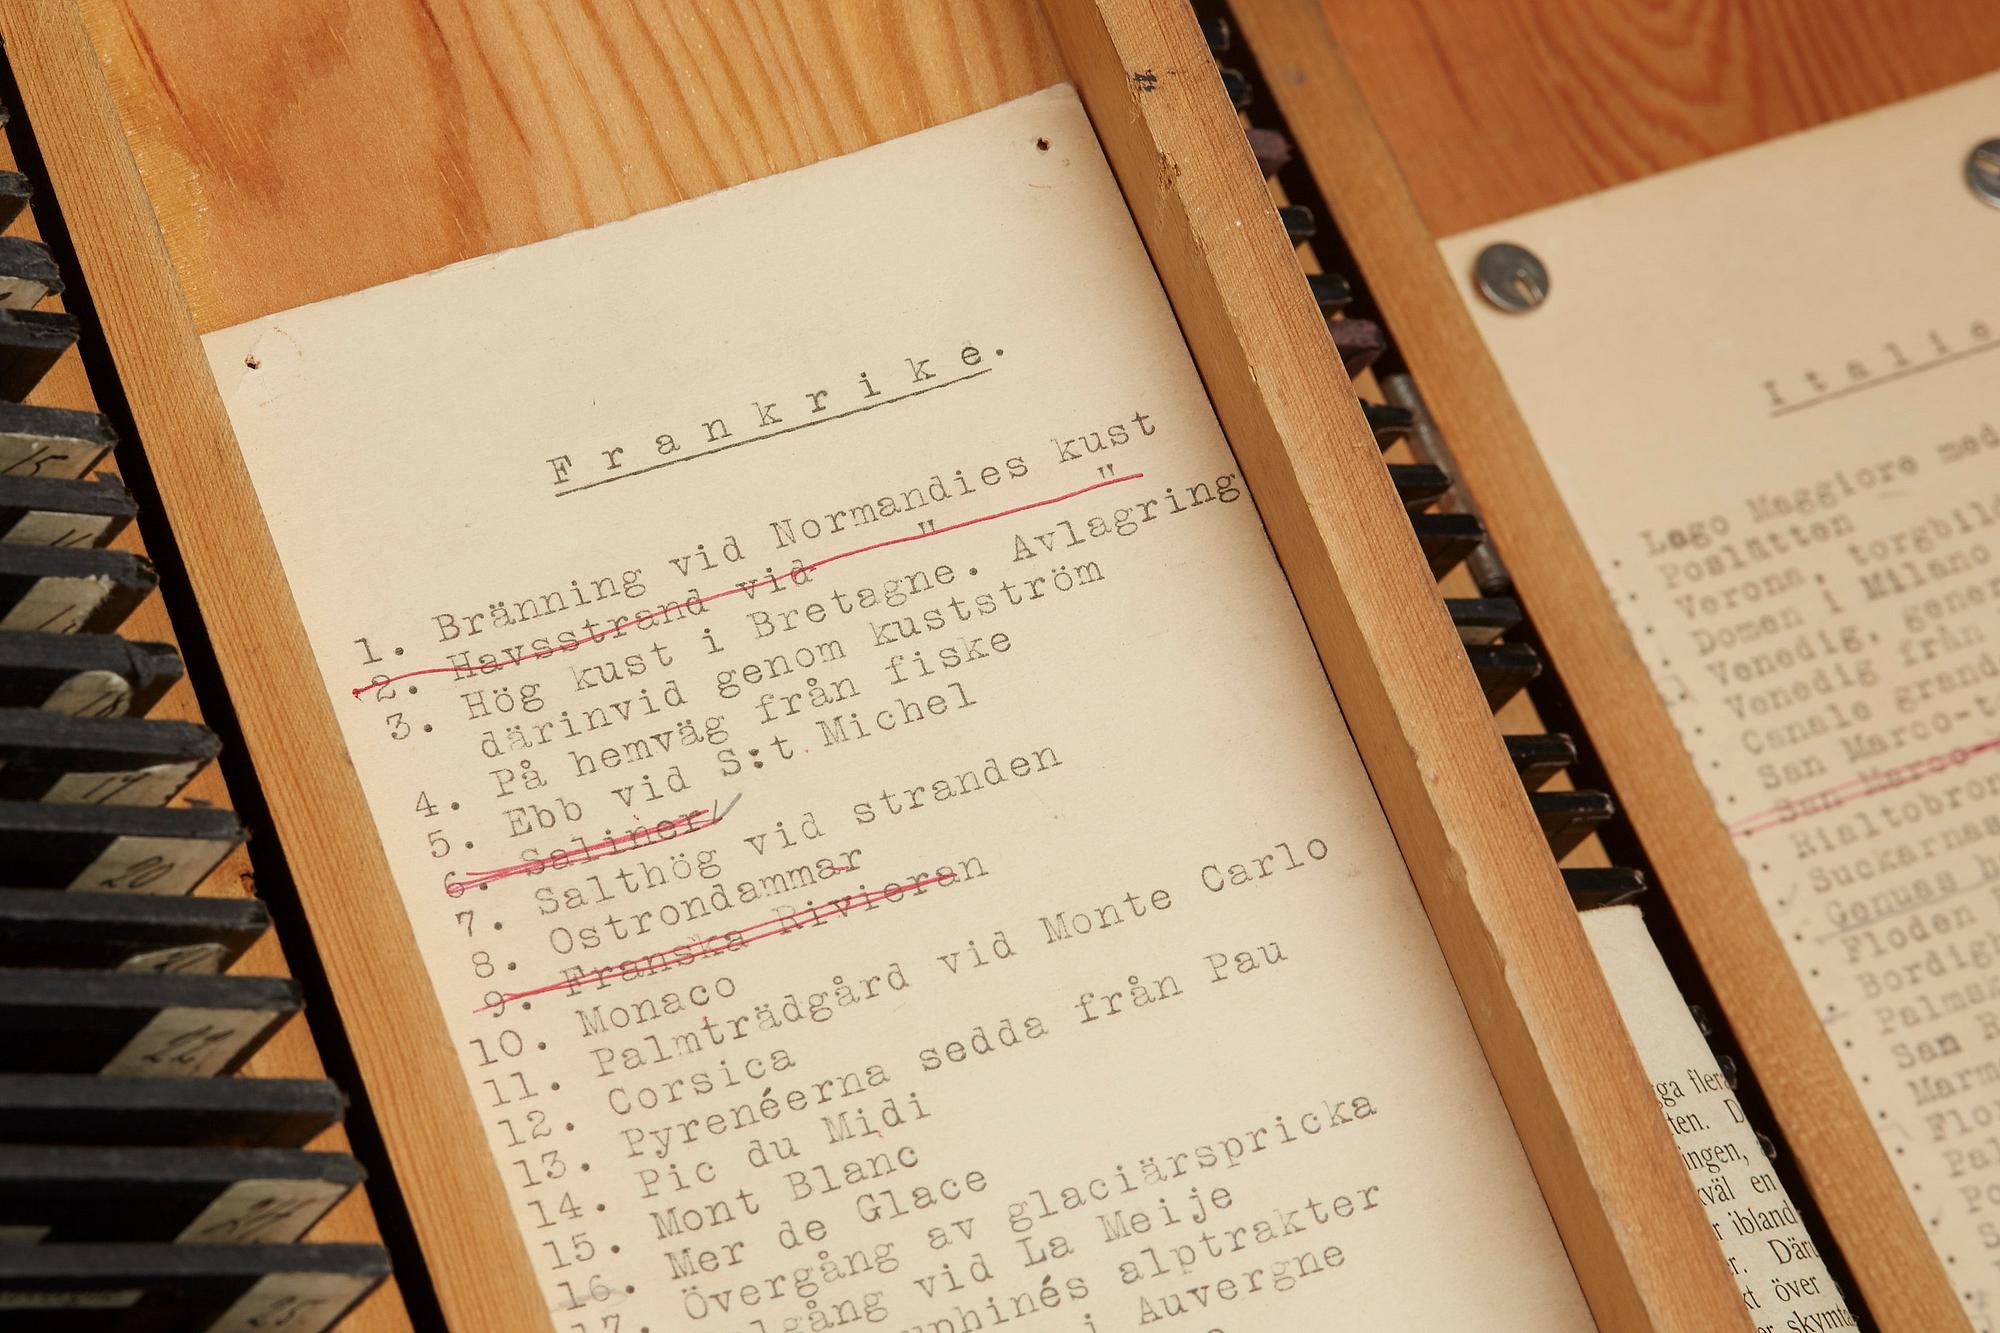 Frankrike.
1. Bränning vid Normandies kust
2. Havsstrand vid " "
3. Hög kust i Bretagne. Avlagring
därinvid genom kustström
4. På hemväg från fiske
5. Ebb vid S:t Michel
6. Saliner
7. Salthög vid stranden
8. Ostrondammar
9. Franska Rivieran
10. Monaco
11. Palmträdgård vid Monte Carlo
12. Corsica
13. Pyrenéerna sedda från Pau
14. Pic du Midi
15. Mont Blanc
16. Mer de Glace
17. Övergång av glaciärspricka
vid La Meije
alptrakter
i Auvergne
Italie
Lago Maggiore med
Poslätten
Verona, torgbild
Domen i Milano
Venedig, gener
Venedig från
Canale grand
San Marco-t
San Marco-
Rialtobron
Suckarnas
Genuas
Floden
Bordigh
Palms
San R
Marm
Flo
Pal
Po
gga flera
ten. D
ingen,
kväl en
r ibland
r. Däru
kt över
er skymta
15
20
22
25